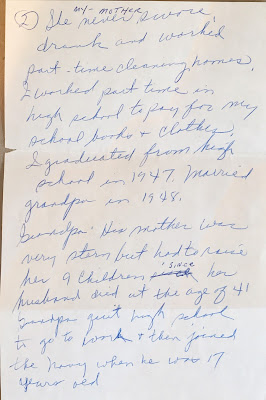 ② She never swore,
MY - MOTHER
drank and worked
part-time cleaning homes.
I worked part time in
high school to pay for my
school books & clothes.
I graduated from high
school in 1947. Married
grandpa in 1948.
Grandpa - His mother was
very stern but had to raise
her 9 children since her
husband died at the age of 41
Grandpa quit high school
to go to work & then joined
the Navy when he was 17
years old